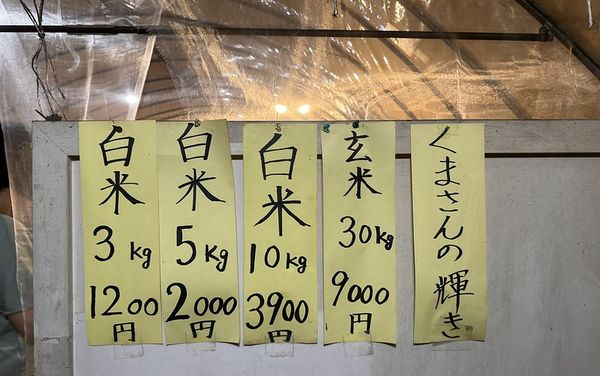 白米
3kg
1200
円
白米
5kg
2000
円
白米
10kg
3900
円
玄米
30kg
9000
円
くまさんの輝き